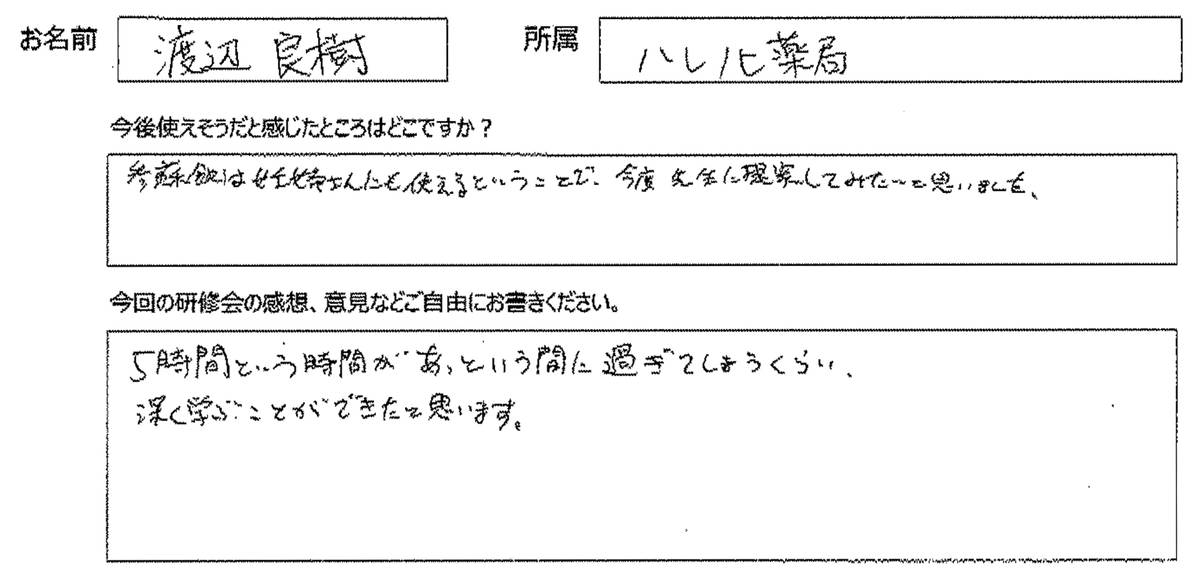 お名前 渡辺 良樹 所属 ハレノヒ薬局
今後使えそうだと感じたところはどこですか？
参蘇飲は妊婦さんにも使えるということで、今度 先生に提案してみたいと思いました。
今回の研修会の感想、意見などご自由にお書きください。
5時間という時間があっという間に過ぎてしまうくらい、
深く学ぶことができたと思います。